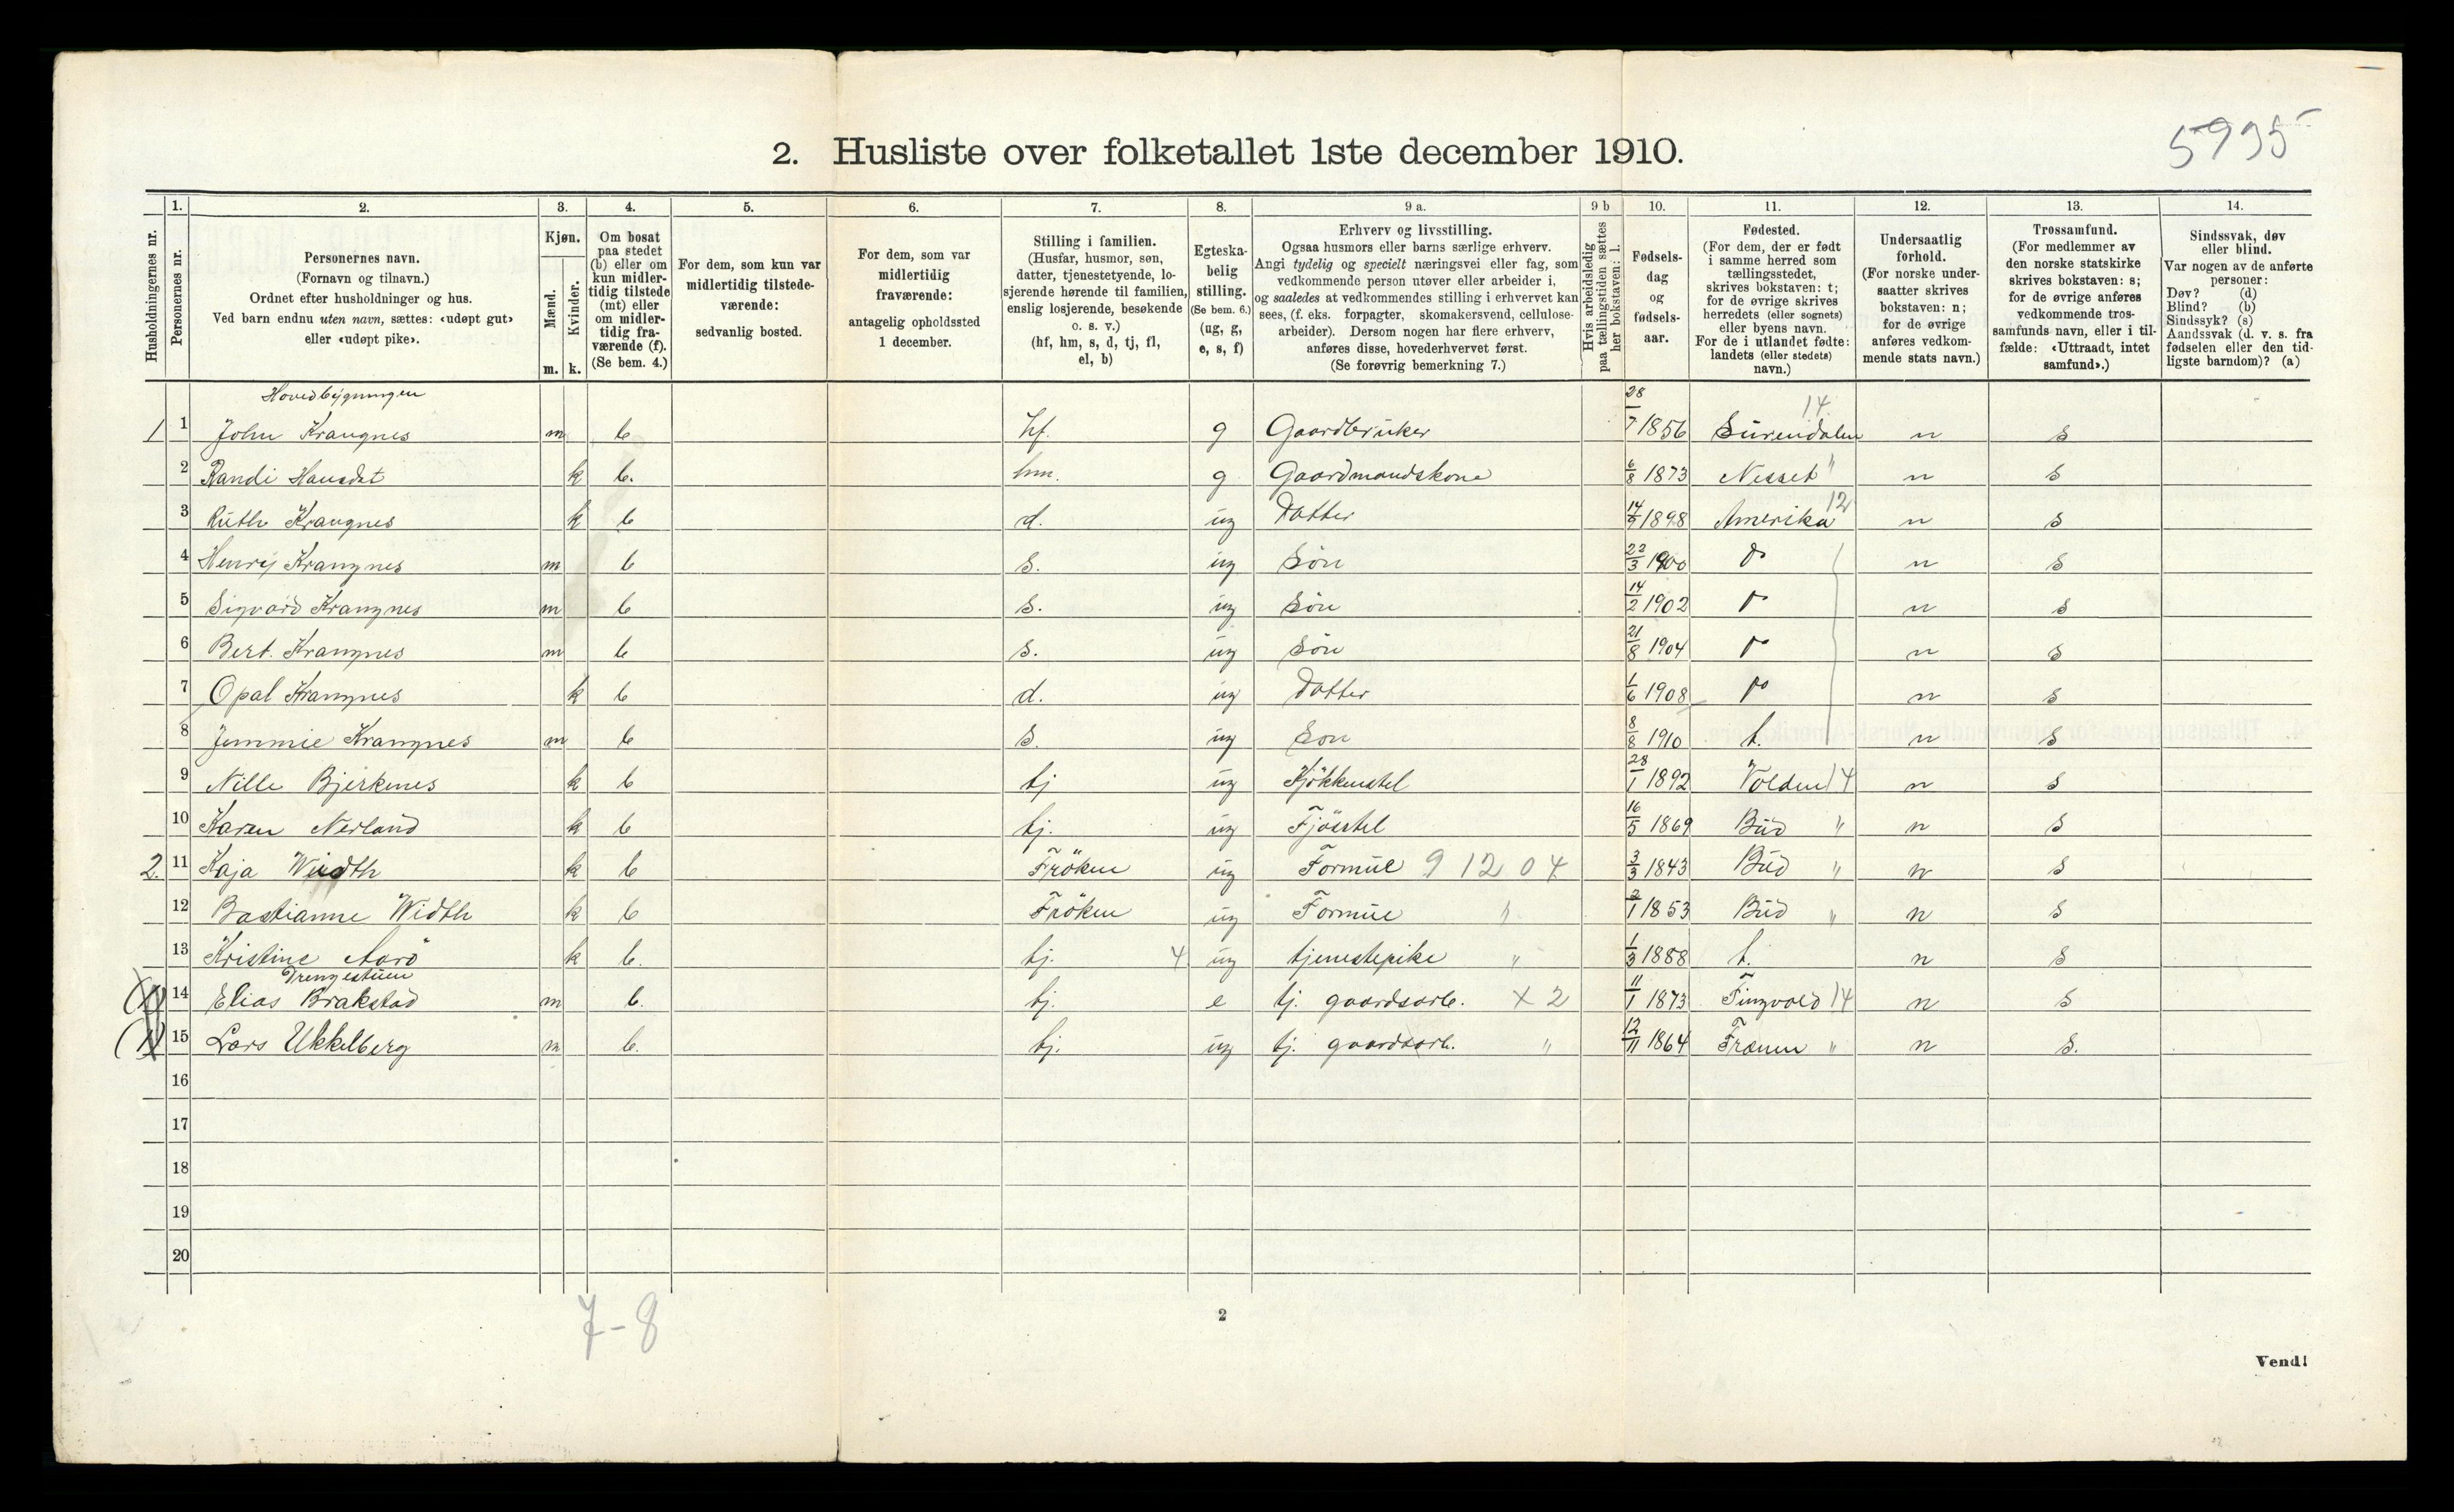 5935
2. Husliste over folketallet 1ste december 1910.
Husholdningernes nr.
1. Personernes nr.
2. Personernes navn. (Fornavn og tilnavn.) Ordnet efter husholdninger og hus. Ved barn endnu uten navn, sættes: «udøpt gut» eller «udøpt pike».
3. Kjøn. Mænd. m. Kvinder. k.
4. Om bosat paa stedet (b) eller om kun midler-tidig tilstede (mt) eller om midler-tidig fra-værende (f). (Se bem. 4.)
5. For dem, som kun var midlertidig tilstede-værende: sedvanlig bosted.
6. For dem, som var midlertidig fraværende: antagelig opholdssted 1 december.
7. Stilling i familien. (Husfar, husmor, søn, datter, tjenestetyende, lo-sjerende hørende til familien, enslig losjerende, besøkende o. s. v.) (hf, hm, s, d, tj, fl, el, b)
8. Egteska-belig stilling. (Se bem. 6.) (ug, g, e, s, f)
9 a. Erhverv og livsstilling. Ogsaa husmors eller barns særlige erhverv. Angi tydelig og specielt næringsvei eller fag, som vedkommende person utøver eller arbeider i, og saaledes at vedkommendes stilling i erhvervet kan sees, (f. eks. forpagter, skomakersvend, cellulose-arbeider). Dersom nogen har flere erhverv, anføres disse, hovederhvervet først. (Se forøvrig bemerkning 7.)
9 b Hvis arbeidsledig paa tællingstiden sættes her bokstaven: l.
10. Fødsels-dag og fødsels-aar.
11. Fødested. (For dem, der er født i samme herred som tællingsstedet, skrives bokstaven: t; for de øvrige skrives herredets (eller sognets) eller byens navn. For de i utlandet fødte: landets (eller stedets) navn.)
12. Undersaatlig forhold. (For norske under-saatter skrives bokstaven: n; for de øvrige anføres vedkom-mende stats navn.)
13. Trossamfund. (For medlemmer av den norske statskirke skrives bokstaven: s; for de øvrige anføres vedkommende tros-samfunds navn, eller i til-fælde: «Uttraadt, intet samfund».)
14. Sindssvak, døv eller blind. Var nogen av de anførte personer: Døv? (d) Blind? (b) Sindssyk? (s) Aandssvak (d. v. s. fra fødselen eller den tid-ligste barndom)? (a)
Hovedbygningen
1 1 John Krangnes m b hf. g Gaardbruker 28/7 1856 Surendalen 14 n s
2 Randi Hansdat k b. hm. g Gaardmandskone 6/8 1873 Nesset " n s
3 Ruth Krangnes k b d. ug Datter 14/9 1898 Amerika 12 n s
4 Henry Krangnes m b s. ug Søn 23/3 1900 do n s
5 Sigvard Krangnes m b s. ug Søn 14/2 1902 do n s
6 Bert. Krangnes m b s. ug Søn 21/8 1904 do n s
7 Opal Krangnes k b d. ug Datter 1/6 1908 do n s
8 Jimmie Krangnes m b s. ug Søn 8/8 1910 t. n s
9 Nille Bjerkenes k b tj ug Kjökkenstel 28/1 1892 Volden 14 n s
10 Karen Nerland k b tj. ug Fjösstel 16/5 1869 Bud " n s
2. 11 Kaja Width k b Fröken ug Formue 9 12 04 3/3 1843 Bud " n s
12 Bastianne Width k b Fröken ug Formue " 2/1 1853 Bud " n s
13 Kristine Aarö k b. tj. 4 ug tjenestepike " 1/3 1888 t. n s
Drengestuen
14 Elias Brakstad m b. tj. e tj. gaardsarb. X 2 11/1 1873 Tingvold 14 n s
(1) 15 Lars Ukkelberg m b. tj. ug tj. gaardsarb. " 12/11 1864 Frænen " n s.
16
17
18
19
20
7-8
2
Vend!